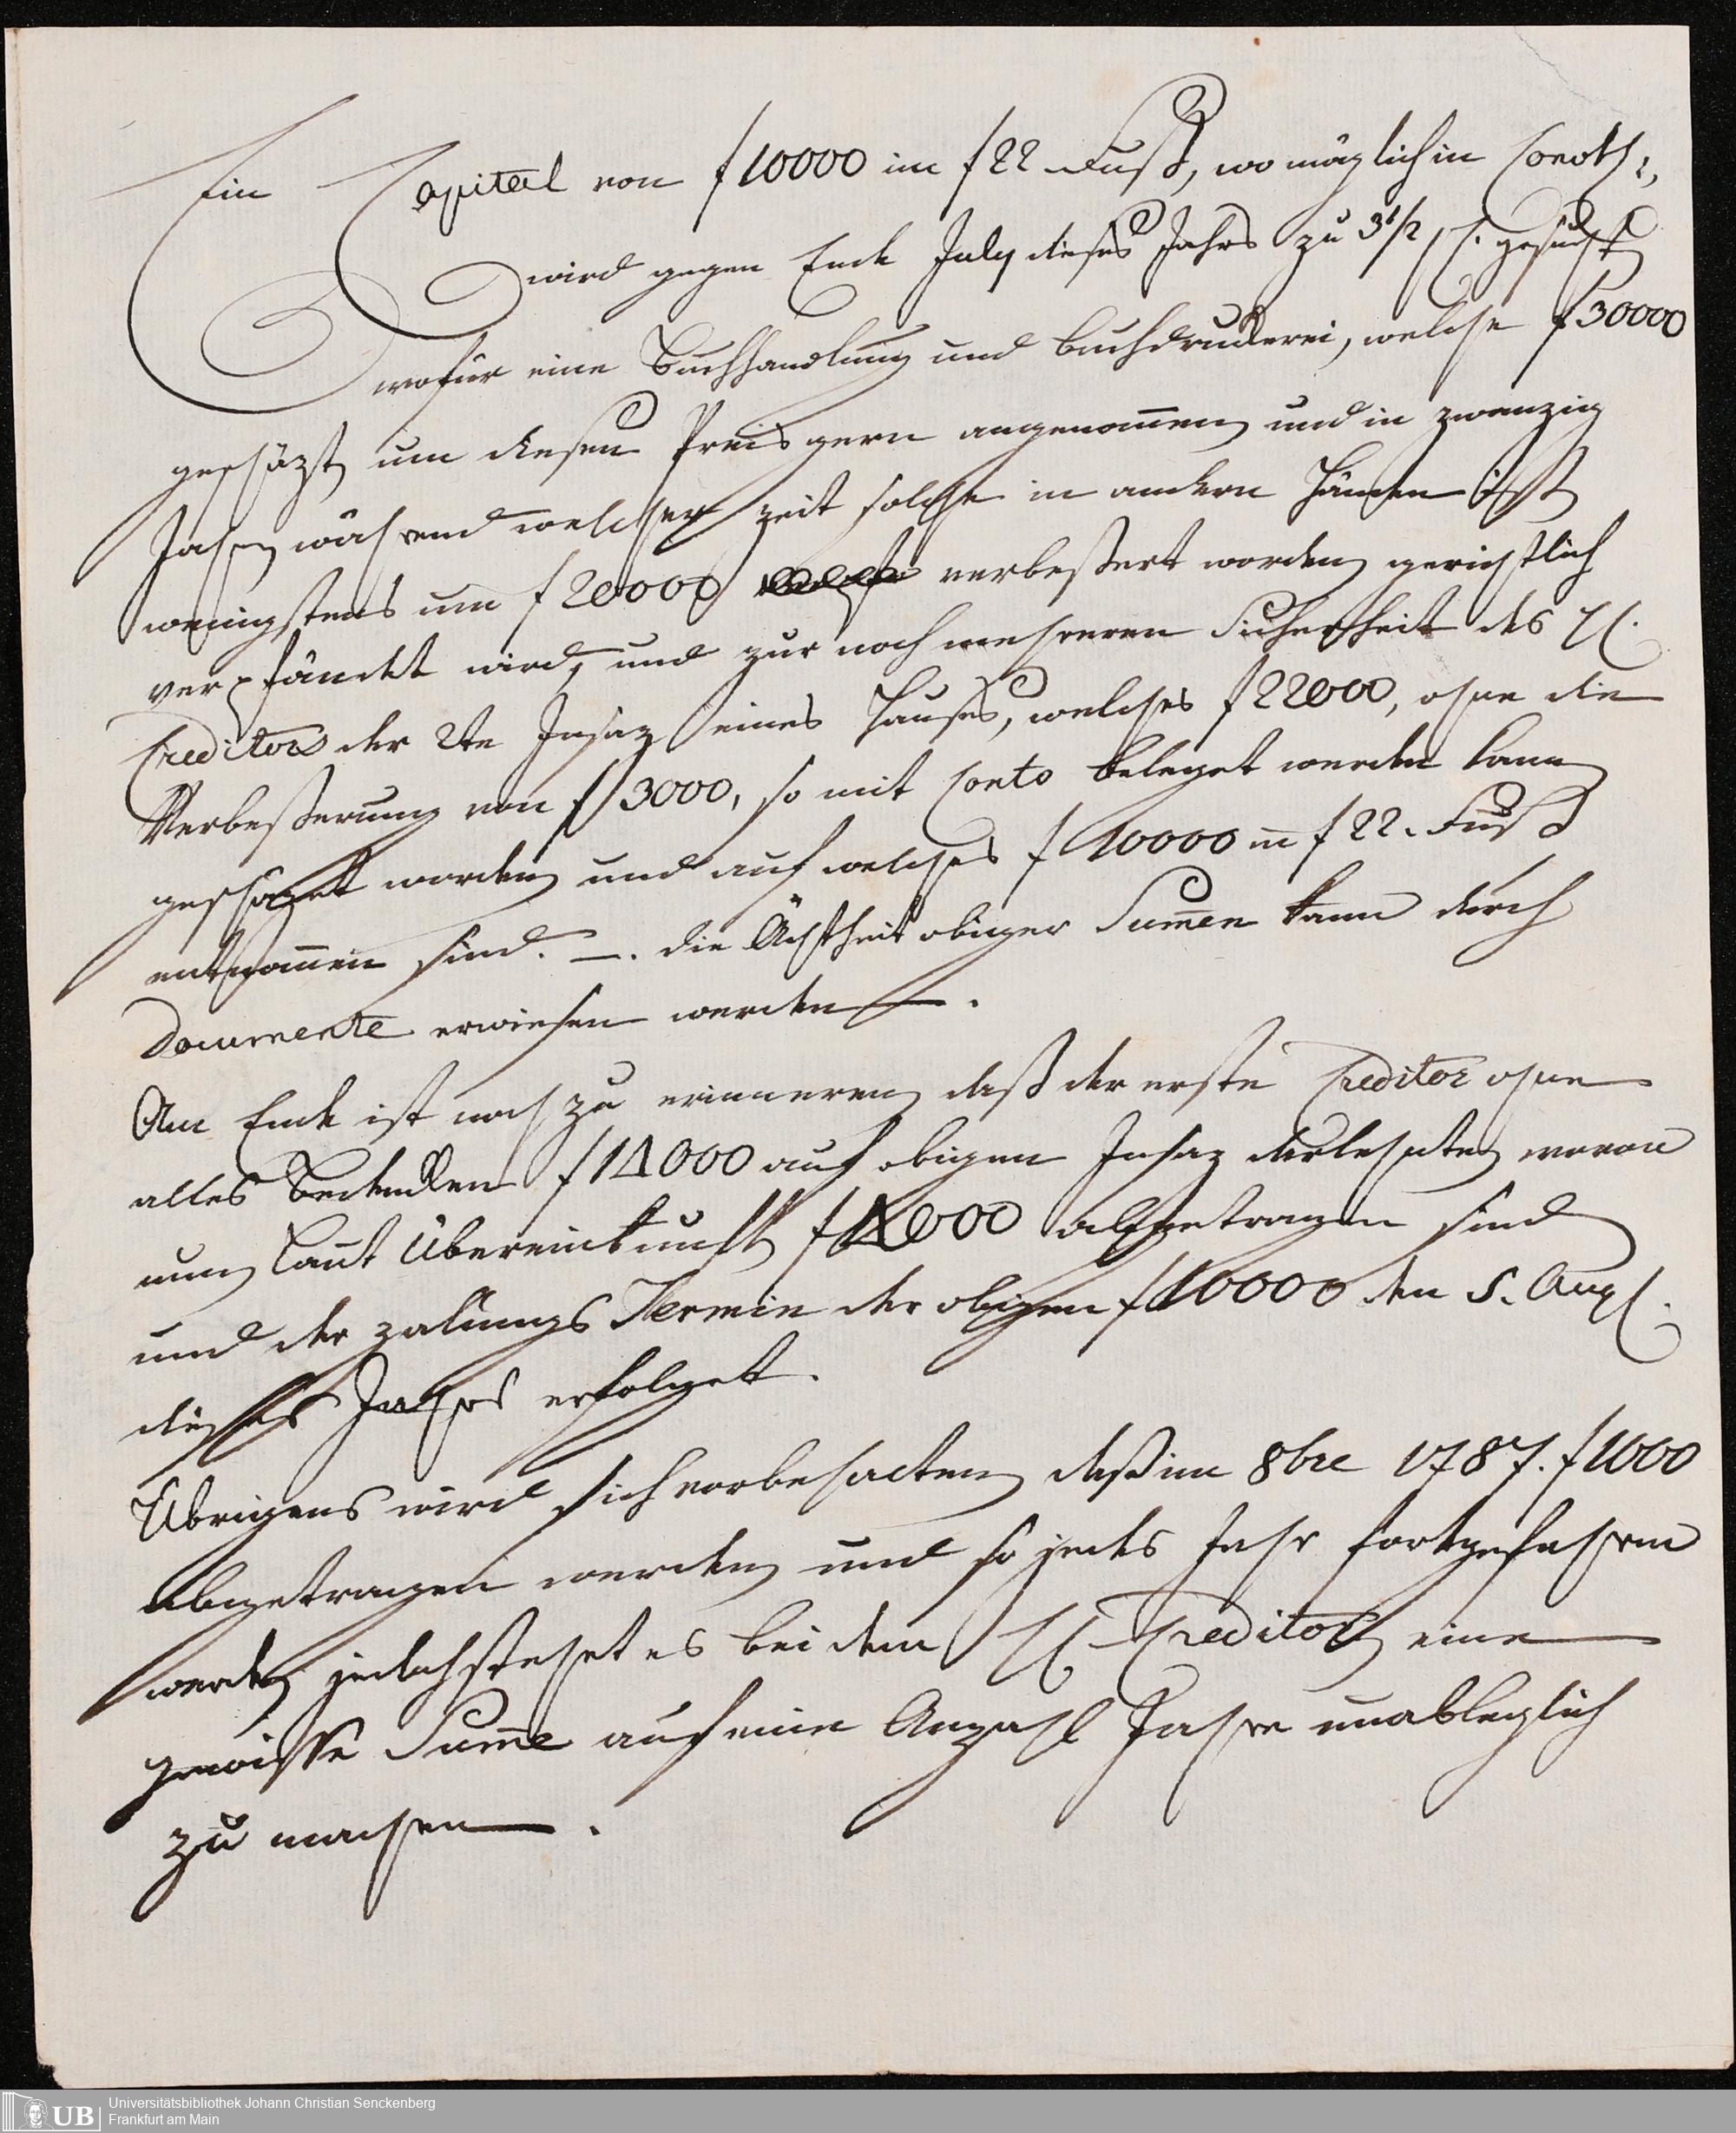 Ein Capital von f 10000 im f 22 Fuß, wo möglich in
wird gegen Ende July dieses Jahrs zu 3½ p C. gesucht
wofür eine Buchhandlung und Buchdruckerei, welche f 30000
geschäzt, um diesen Preis gern angenom̄en, und in zwanzig
Jahren während welcher Zeit solche in andern Händen ist
wenigstens um f 20000 verbeßert worden, gerichtlich
verpfändet wird, und zur noch mehreren Sicherheit des H.
Creditors der 2te Insaz eines Hauses, welches f 22000, ohne die
Verbeßerung von f 3000, so mit Conto beleget werden kann,
geschäzet worden, und auf welches f 10000 in f 22. Fuß
entnom̄en sind. —. die Ächtheit obiger Sum̄en kann durch
Documente erwiesen werden —.
Am Ende ist noch zu erinneren, daß der erste Creditor ohne
alles Bedenken f 14000 auf obigen Insaz darlehnte, wovon
nun, laut Übereinkunft, f 4000 abgetragen sind
und der zalungs Termin der obigen f 10000 den 5. Aug.
dieses Jahrs erfolget.
Übrigens wird sich vorbehalten, daß im 8bre 1787. f 1000
abgetragen werden, und so jedes Jahr fortgefahren
werde, jedoch stehet es bei dem H. Creditor, eine
gewisse Sum̄e auf eine Anzahl Jahre unableglich
zu machen —.
Universitätsbibliothek Johann Christian Senckenberg
UB Frankfurt am Main